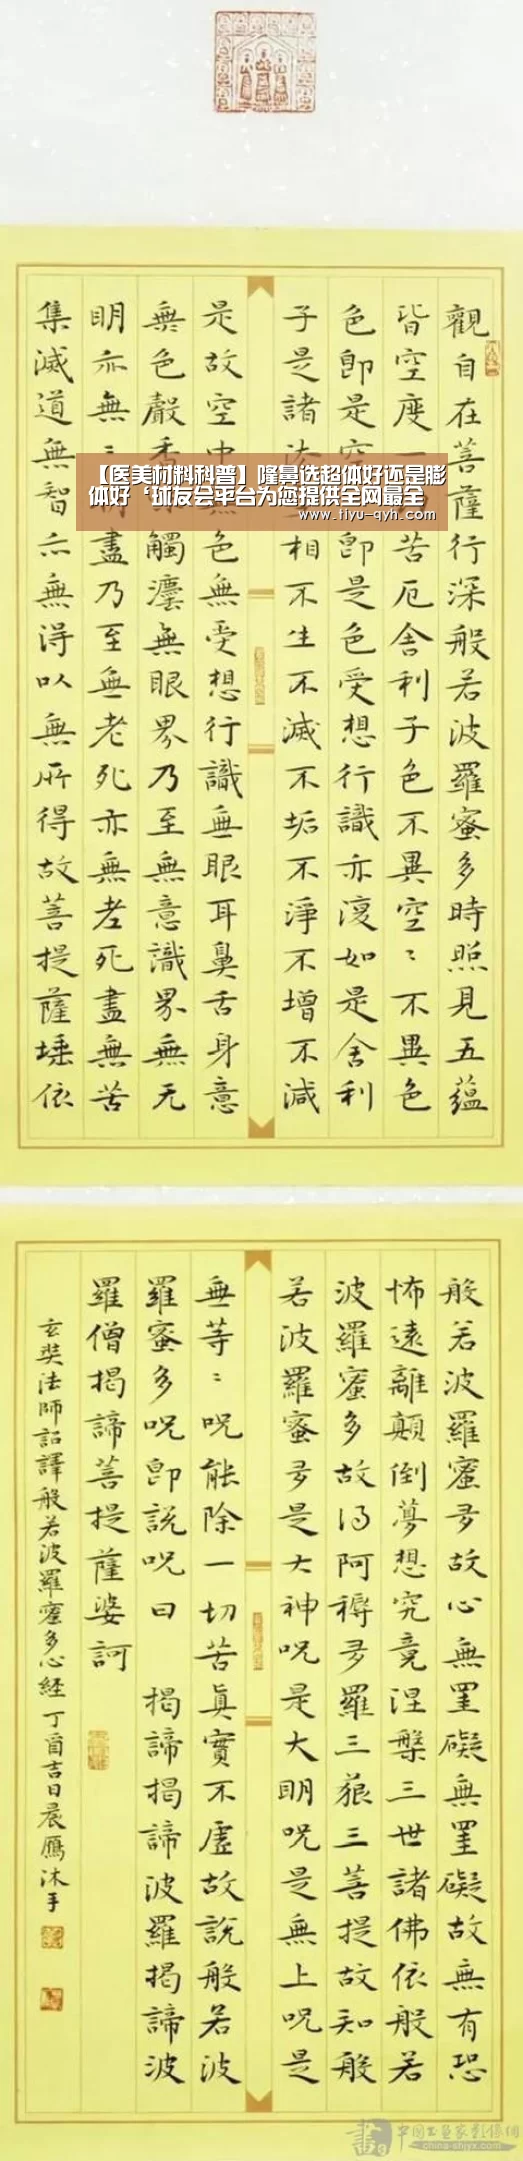 【医美材料科普】隆鼻选超体好还是膨
体好‘球友会平台为您提供全网最全
www.tiyu-qyh.com
觀自在菩薩行深般若波羅蜜多時照見五蘊
皆空度一苦厄舍利子色不異空〻不異色
色即是空即是色受想行識亦復如是舍利
子是諸法相不生不滅不垢不淨不增不減
是故空中色無受想行識無眼耳鼻舌身意
無色聲香觸灋無眼界乃至無意識界無无
明亦無〻盡乃至無老死亦無老死盡無苦
集滅道無智亦無得以無所得故菩提薩埵依
般若波羅蜜多故心無罣礙無罣礙故無有恐
怖遠離顛倒夢想究竟涅槃三世諸佛依般若
波羅蜜多故得阿耨多羅三藐三菩提故知般
若波羅蜜多是大神呪是大明呪是無上呪是
無等〻呪能除一切苦真實不虛故說般若波
羅蜜多呪即說呪曰 揭諦揭諦波羅揭諦波
羅僧揭諦菩提薩婆訶
玄奘法師詔譯般若波羅蜜多心經丁酉吉日晨鴈沐手
中国书画家影像网
china-shjyx.com